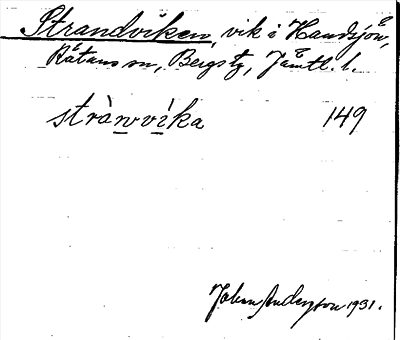 Strandviken, vik i Handsjön,
Rätans sn, Bergs tg, Jämtl. l.
strànvíka 149
Johan Anderson 1931.